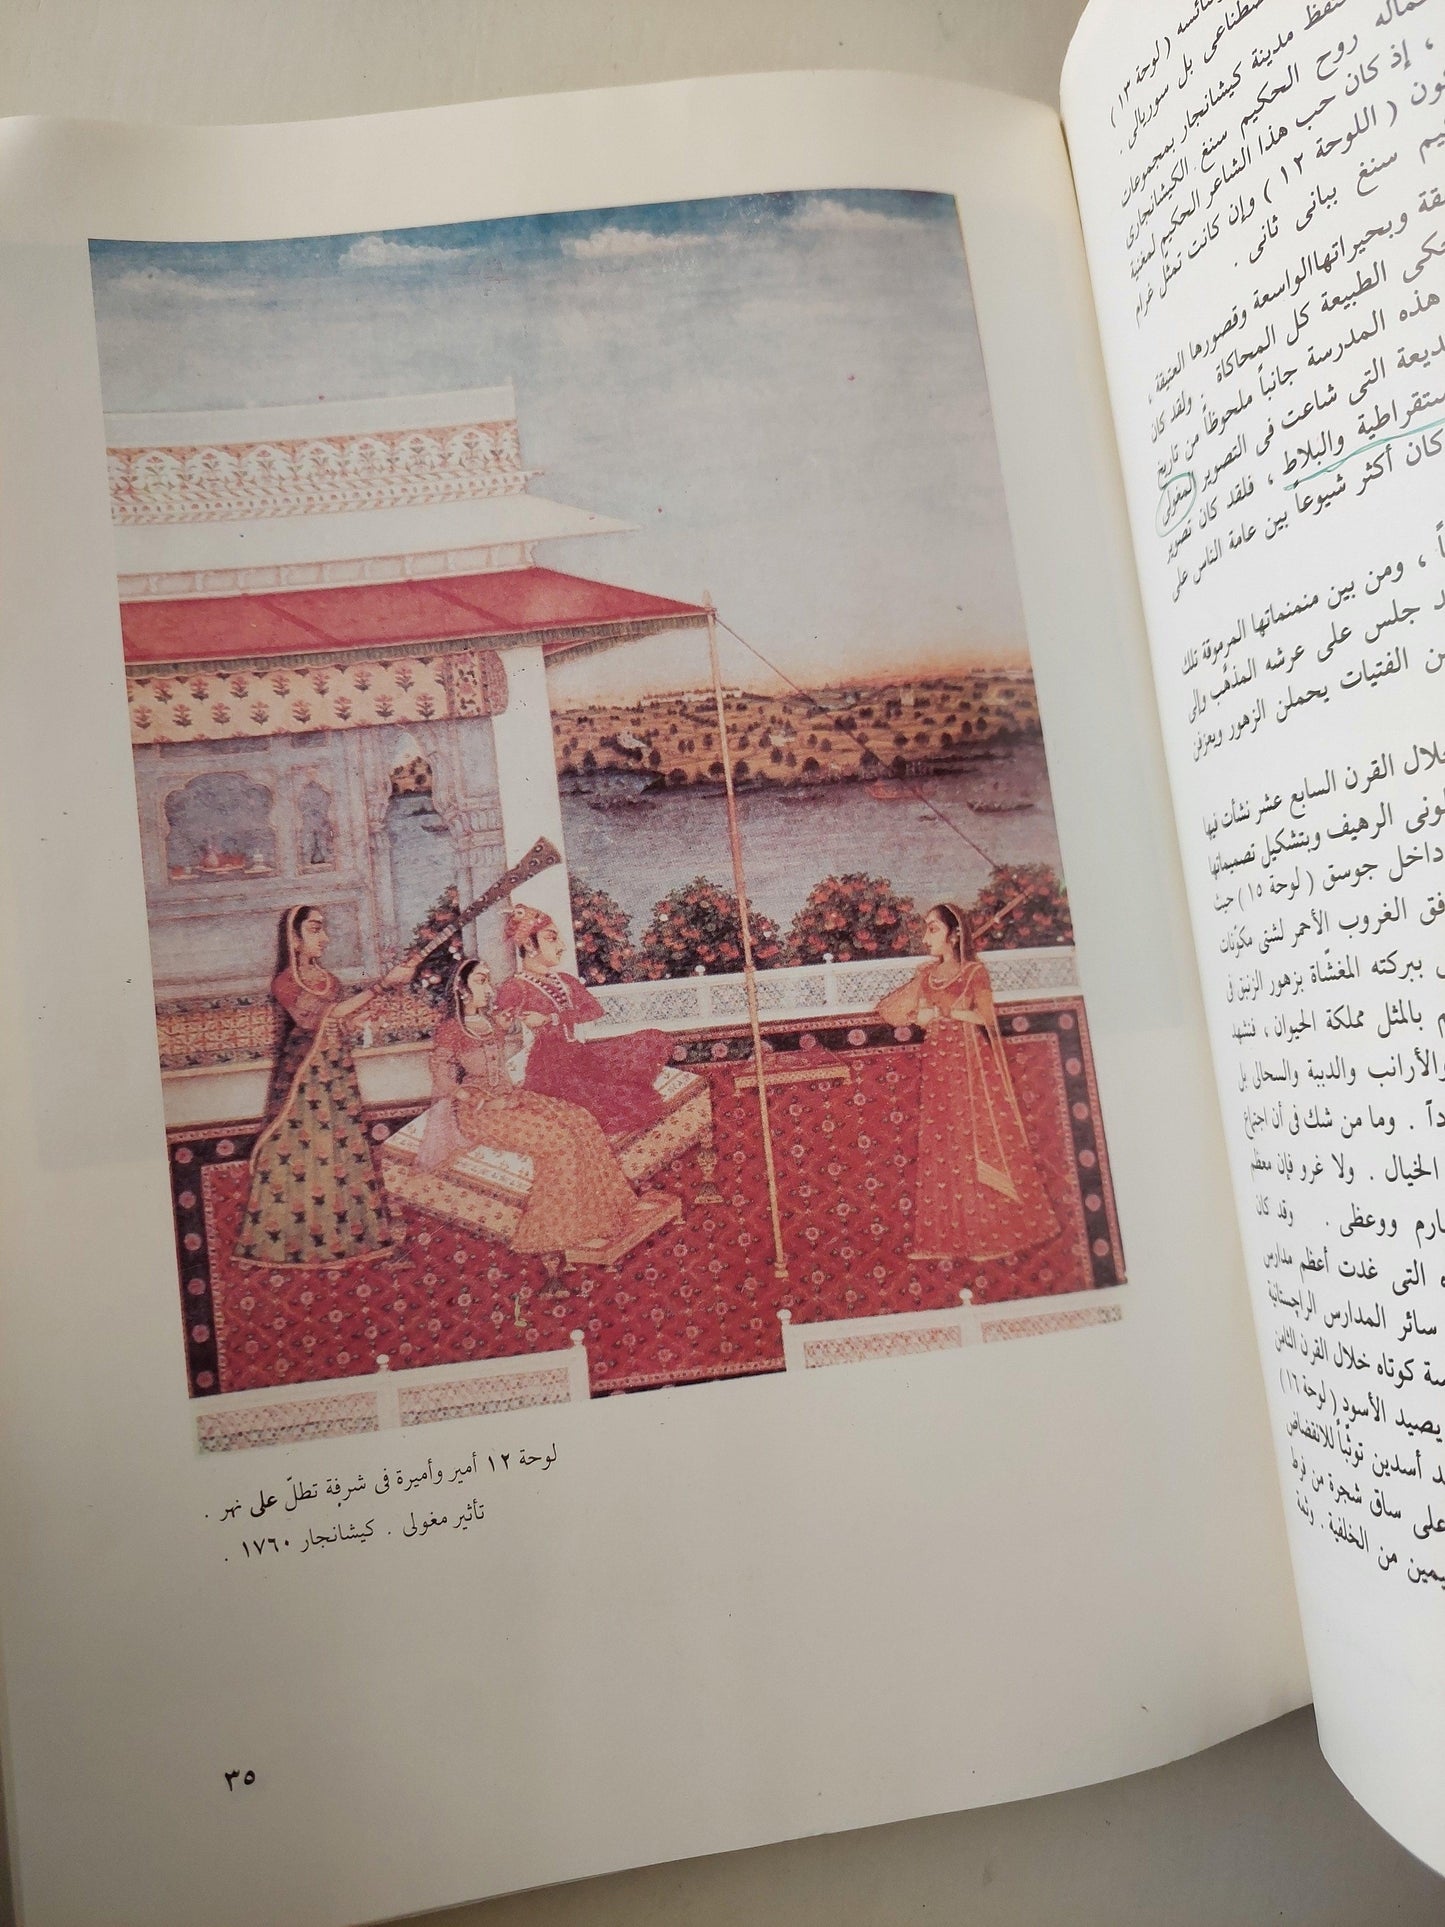 لوحة ١٢ أمير وأميرة فى شرفة تطلّ على نهر .
تأثير مغولى . كيشانجار ١٧٦٠ .
٣٥
صطناعى بل سوريالى .
حتفظ مدينة كيشانجار بمجموعات
روح الحكيم سنغ الكيشانجارى
، إذ كان حب هذا الشاعر الحكيم لمغنية
( اللوحة ١٢ ) وإن كانت تمثل غرام
سنغ ببانى ثانى .
وبحيراتها الواسعة وقصورها العتيقة ،
الطبيعة كل المحاكاة . ولقد كان
هذه المدرسة جانباً ملحوظاً من تاريخ
التى شاعت فى التصوير المغولى
ستقراطية والبلاط ، فلقد كان تصوير
كان أكثر شيوعاً بين عامة الناس على
، ومن بين منمنماتها المرموقة تلك
جلس على عرشه المذهّب وإلى
الفتيات يحملن الزهور ويعزفن
خلال القرن السابع عشر نشأت فيها
الرهيف وبتشكيل تصميماتها
داخل جوسق ( لوحة ١٥ ) حيث
الغروب الأحمر لشتى مكوّنات
ببركته المغشّاة بزهور الزنبق فى
بالمثل مملكة الحيوان ، فنشهد
والأرانب والدببة والسحالى بل
. وما من شك فى أن اجتماع
الخيال . ولا غرو فإن معظم
ووعظى . وقد كان
التى غدت أعظم مدارس
سائر المدارس الراجستانية
كوتاه خلال القرن الثامن
يصيد الأسود ( لوحة ١٦ )
أسدين توثّباً للانقضاض
على ساق شجرة من فرط
من الخلفية . وثمة